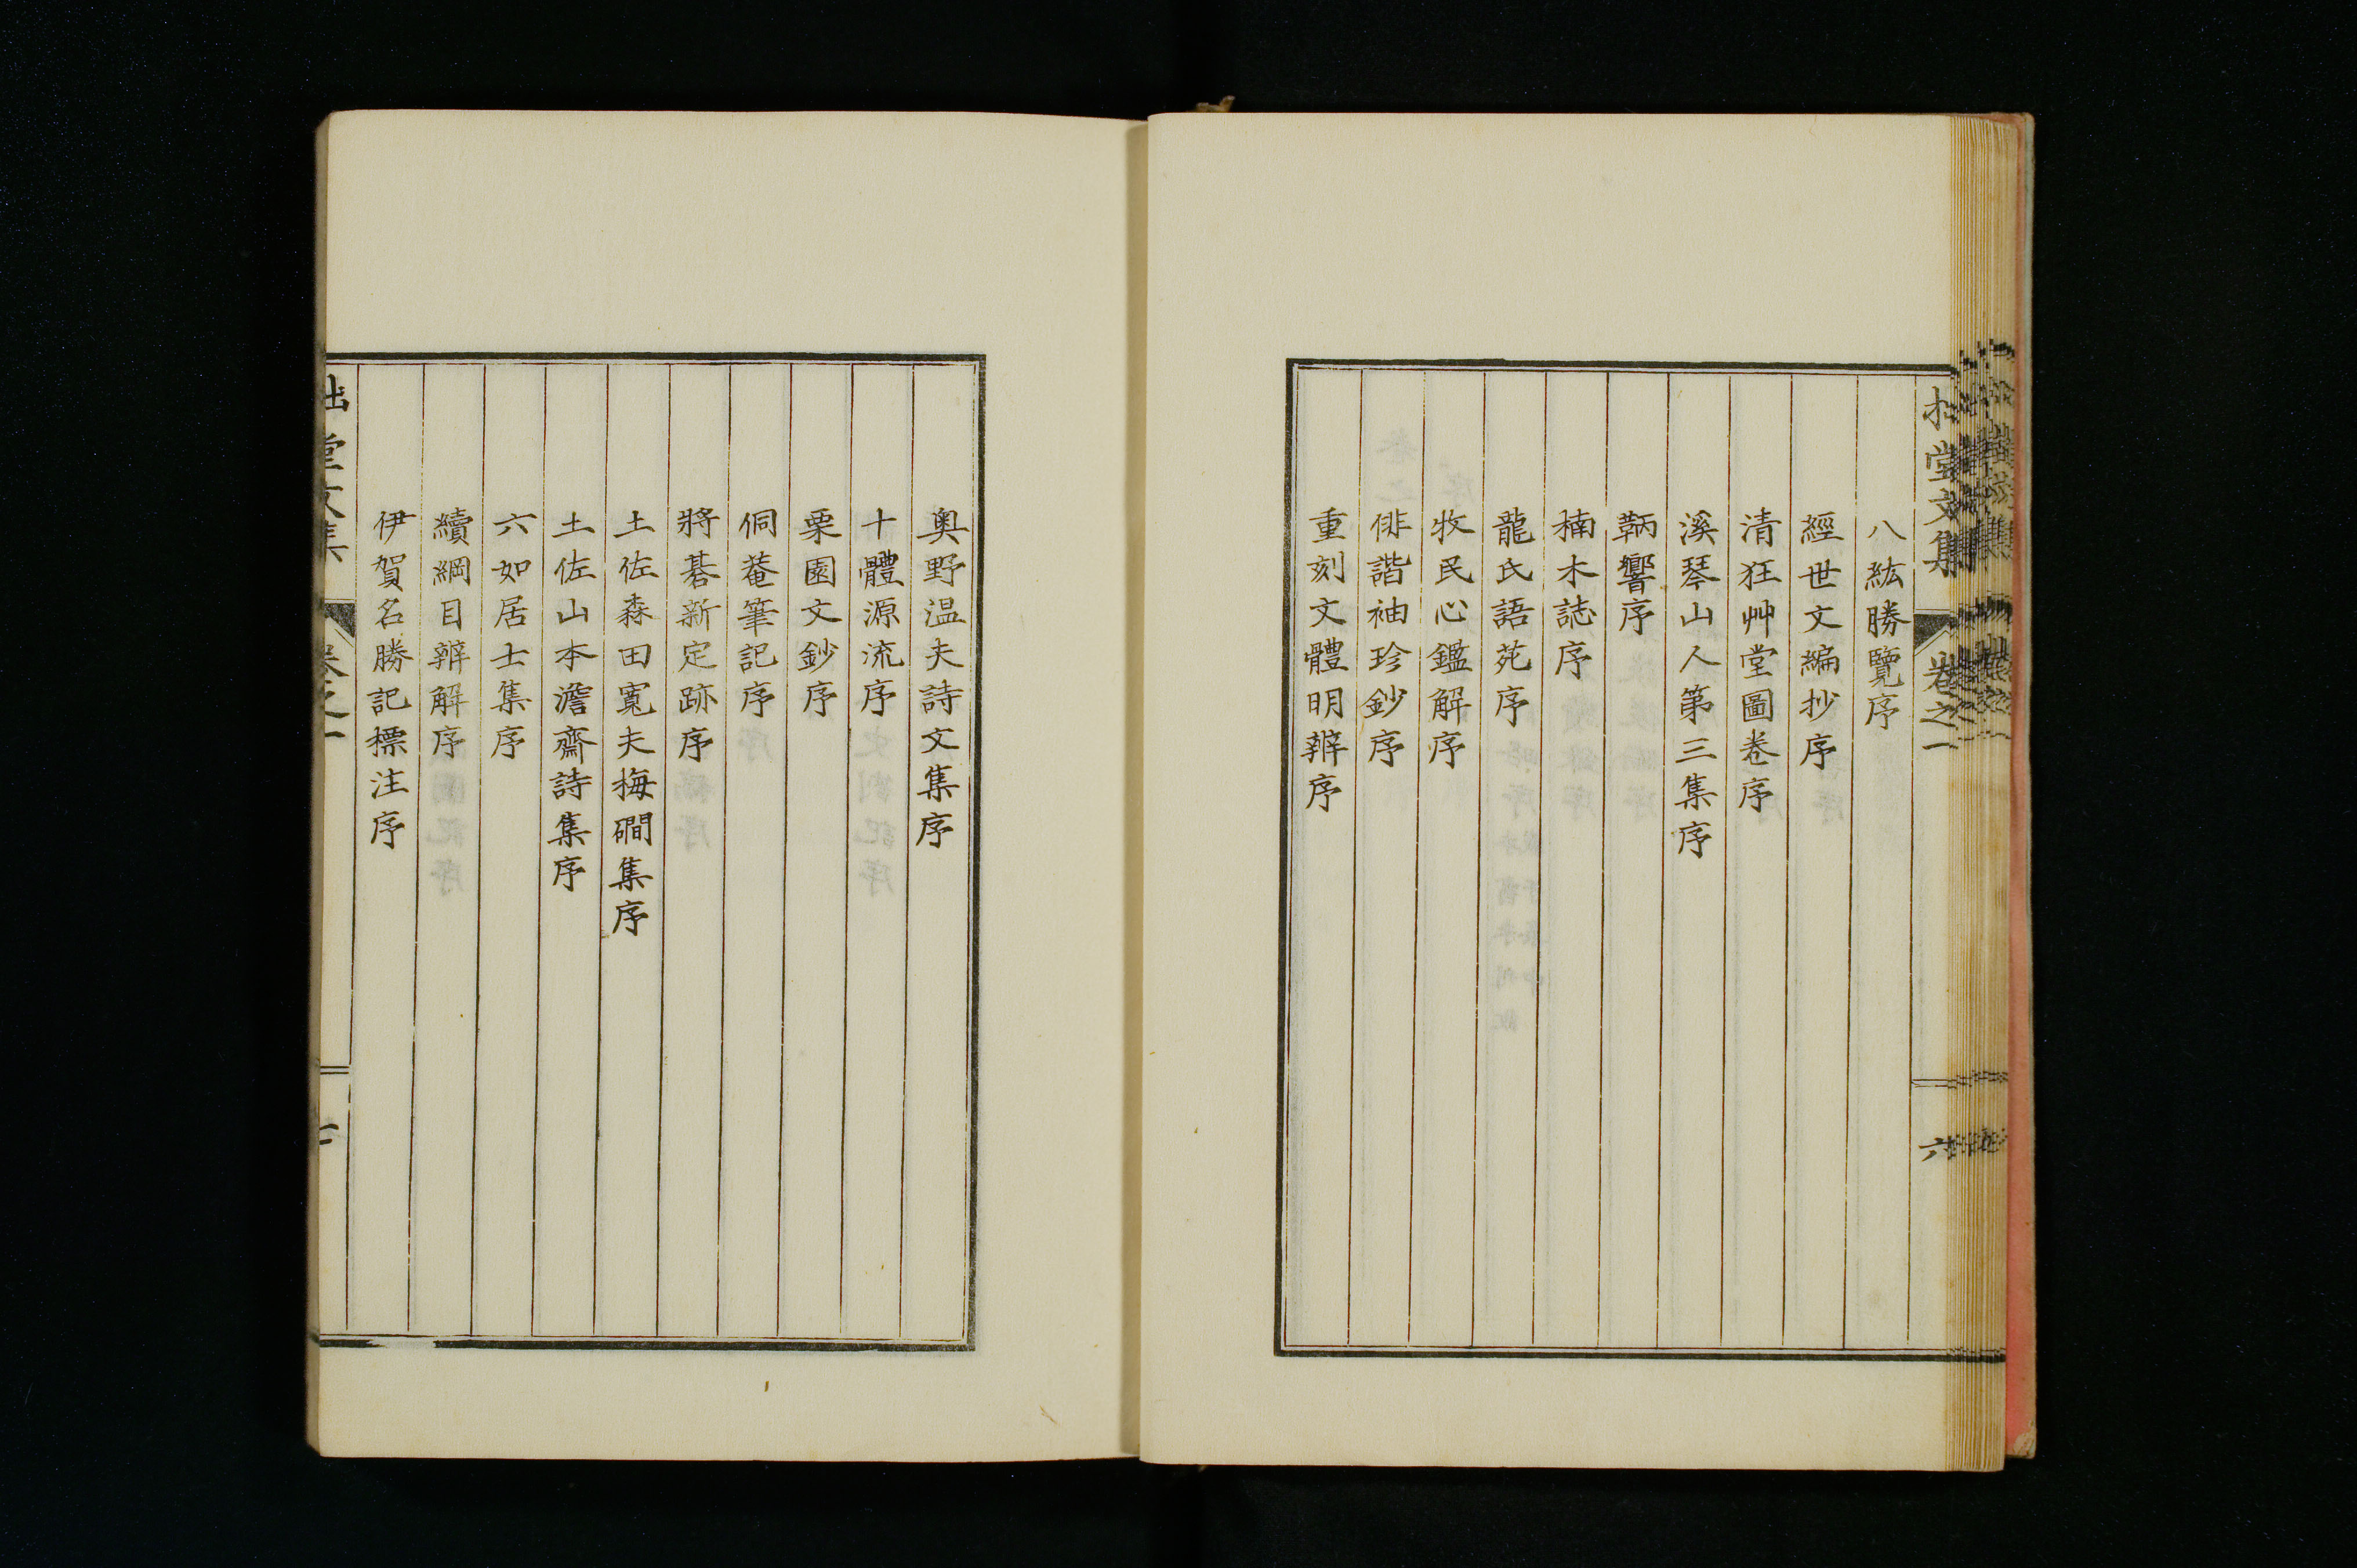 拙堂文集 卷之一 六
八紘勝覽序
經世文編抄序
清狂艸堂圖卷序
溪琴山人第三集序
鞆響序
楠木誌序
龍氏語苑序
牧民心鑑解序
俳諧袖珍鈔序
重刻文體明辨序
奧野温夫詩文集序
十體源流序
栗園文鈔序
侗菴筆記序
將棊新定跡序
土佐森田寬夫梅磵集序
土佐山本澹齋詩集序
六如居士集序
續綱目辨解序
伊賀名勝記標注序
拙堂文集 卷之一 七